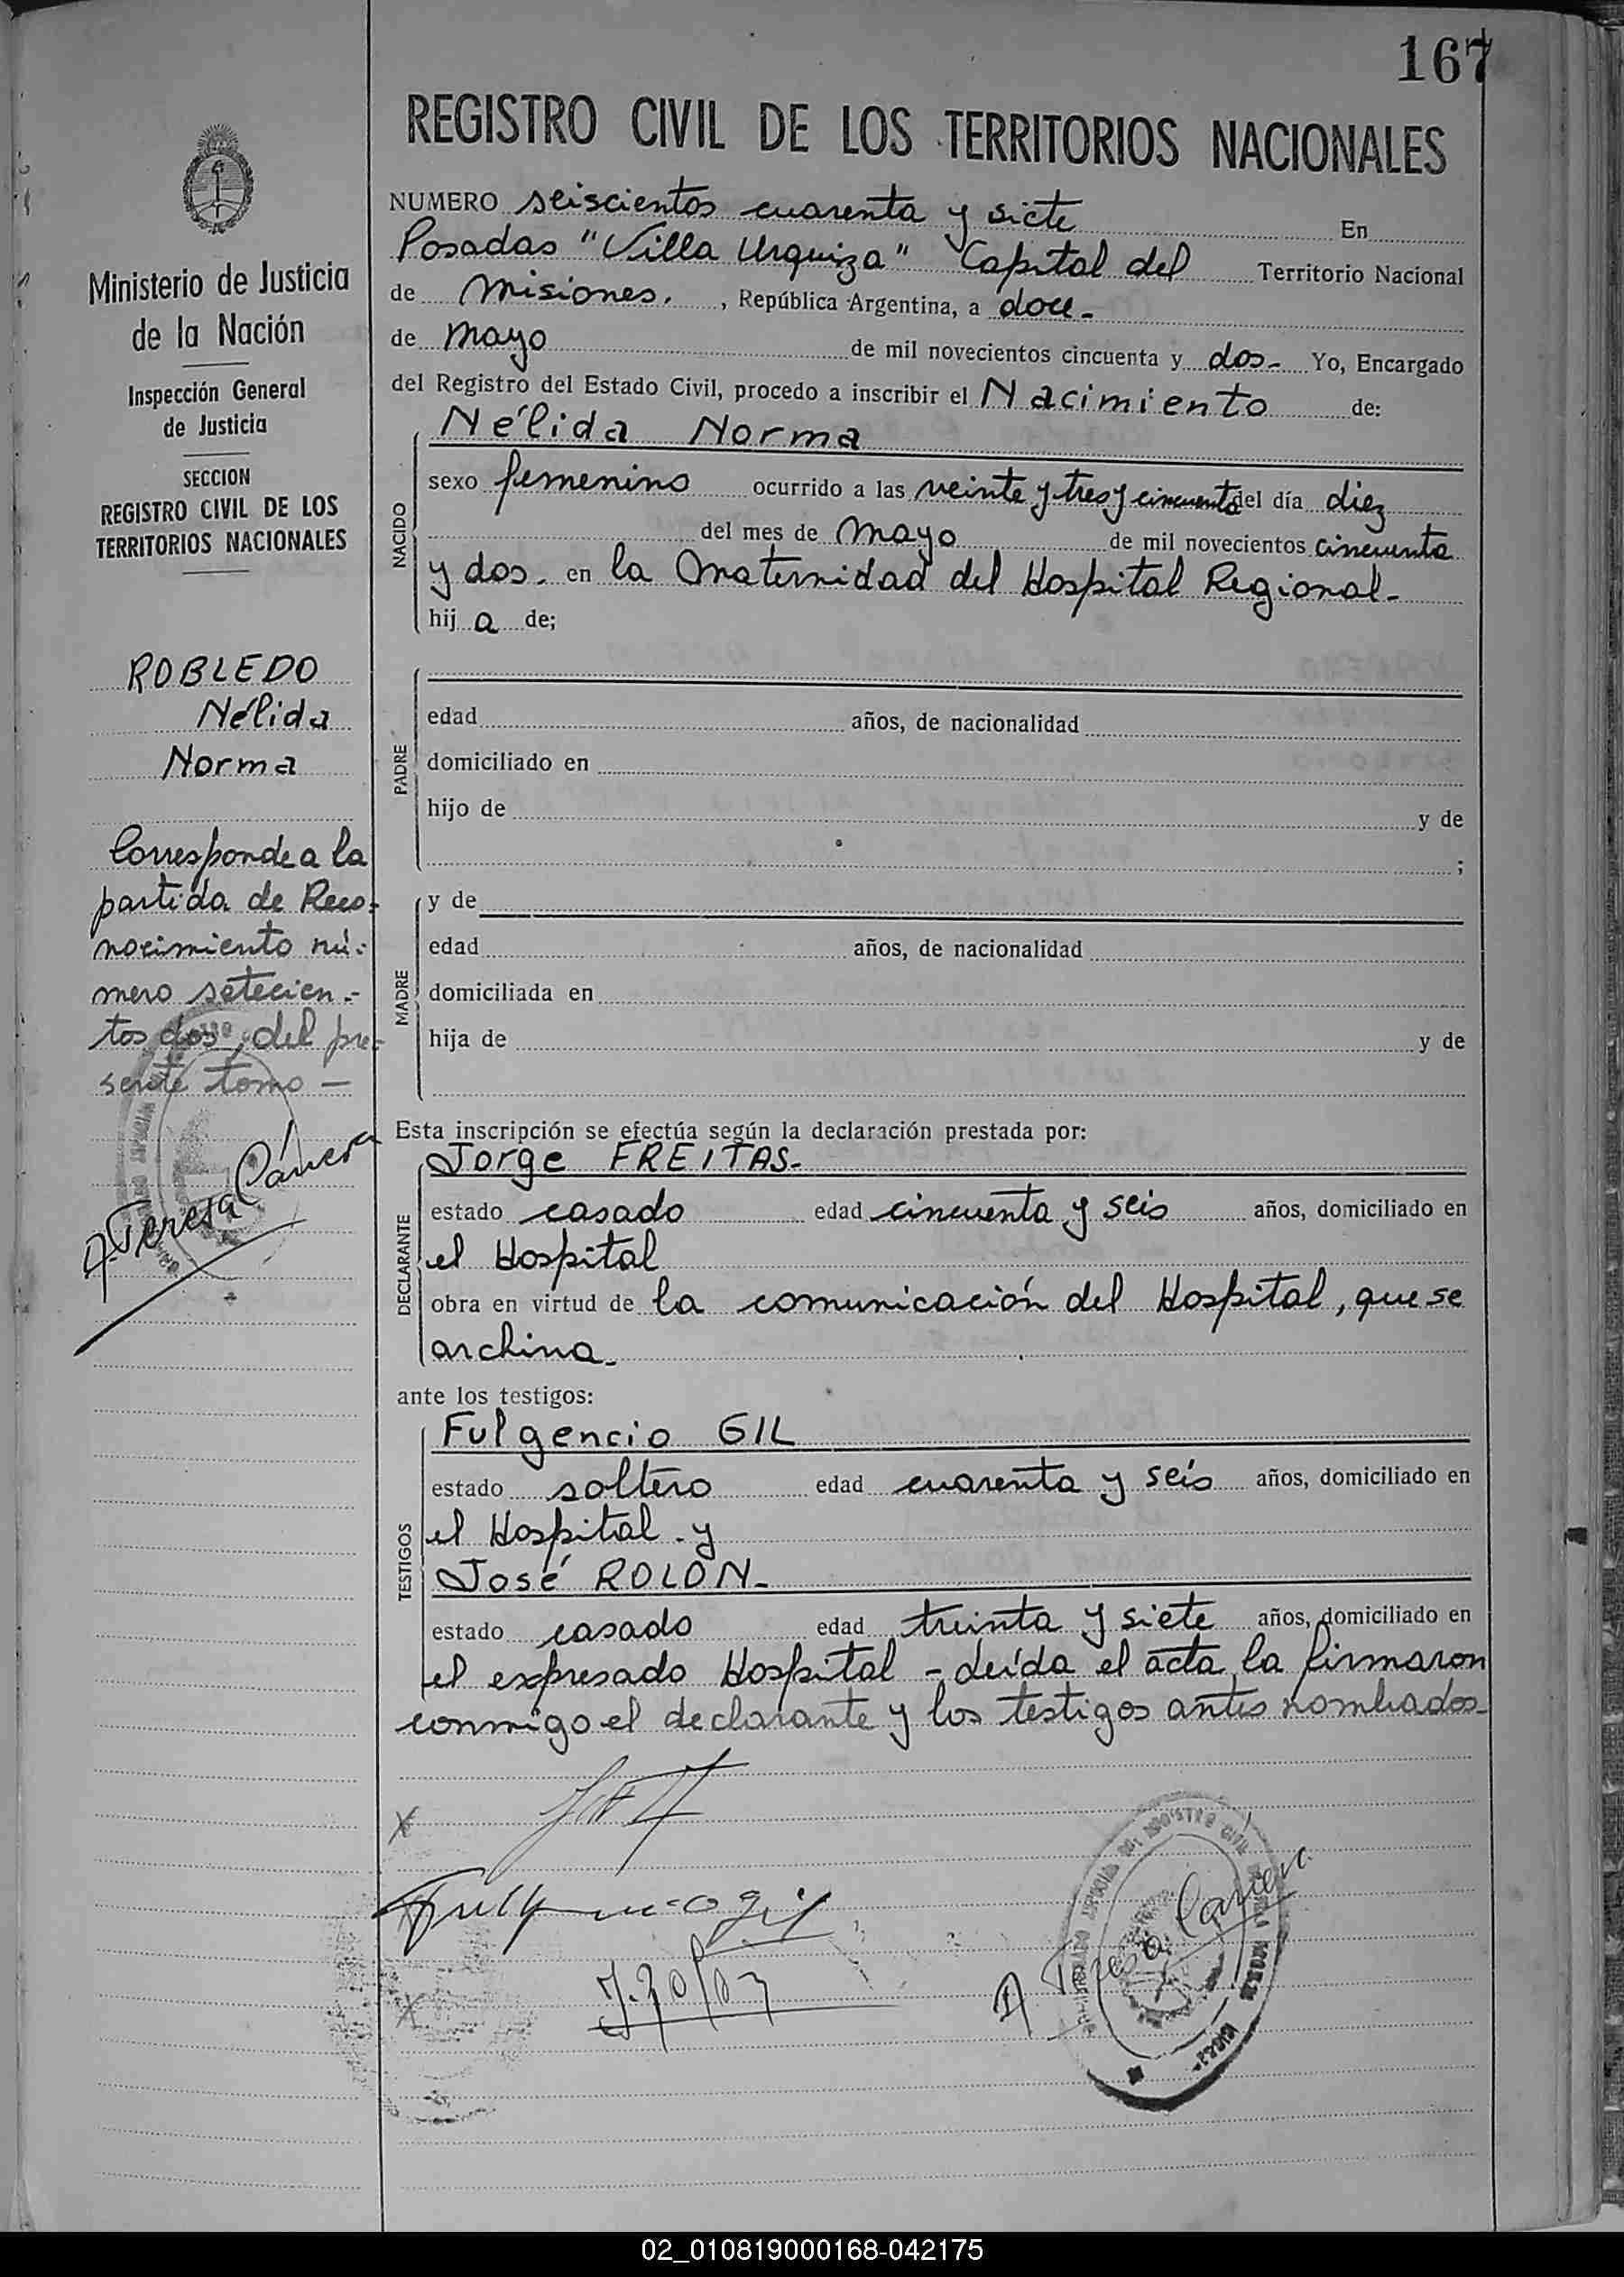 167
REGISTRO CIVIL DE LOS TERRITORIOS NACIONALES
Ministerio de Justicia
de la Nación
Inspección General
de Justicia
SECCION
REGISTRO CIVIL DE LOS
TERRITORIOS NACIONALES
ROBLEDO
Nélida
Norma
Corresponde a la
partida de Reco-
nocimiento nú-
mero setecien-
tos dos, del pre-
sente tomo —
A. Teresa Cánera
NUMERO seiscientos cuarenta y siete En
Posadas "Villa Urquiza" Capital del Territorio Nacional
de Misiones. , República Argentina, a doce-
de mayo de mil novecientos cincuenta y dos- Yo, Encargado
del Registro del Estado Civil, procedo a inscribir el Nacimiento de:
NACIDO
Nélida Norma
sexo femenino ocurrido a las veinte y tres y cincuenta del día diez
del mes de mayo de mil novecientos cincuenta
y dos- en la Maternidad del Hospital Regional-
hij a de;
PADRE
edad años, de nacionalidad
domiciliado en
hijo de y de
;
MADRE
y de
edad años, de nacionalidad
domiciliada en
hija de y de
Esta inscripción se efectúa según la declaración prestada por:
DECLARANTE
Jorge FREITAS-
estado casado edad cincuenta y seis años, domiciliado en
el Hospital
obra en virtud de la comunicación del Hospital, que se
archiva-
ante los testigos:
TESTIGOS
Fulgencio GIL
estado soltero edad cuarenta y seis años, domiciliado en
el Hospital- y
José ROLON-
estado casado edad treinta y siete años, domiciliado en
el expresado Hospital - Leída el acta la firmaron
conmigo el declarante y los testigos antes nombrados-
Fulgencio Gil
A Teresa Cánera
02_010819000168-042175